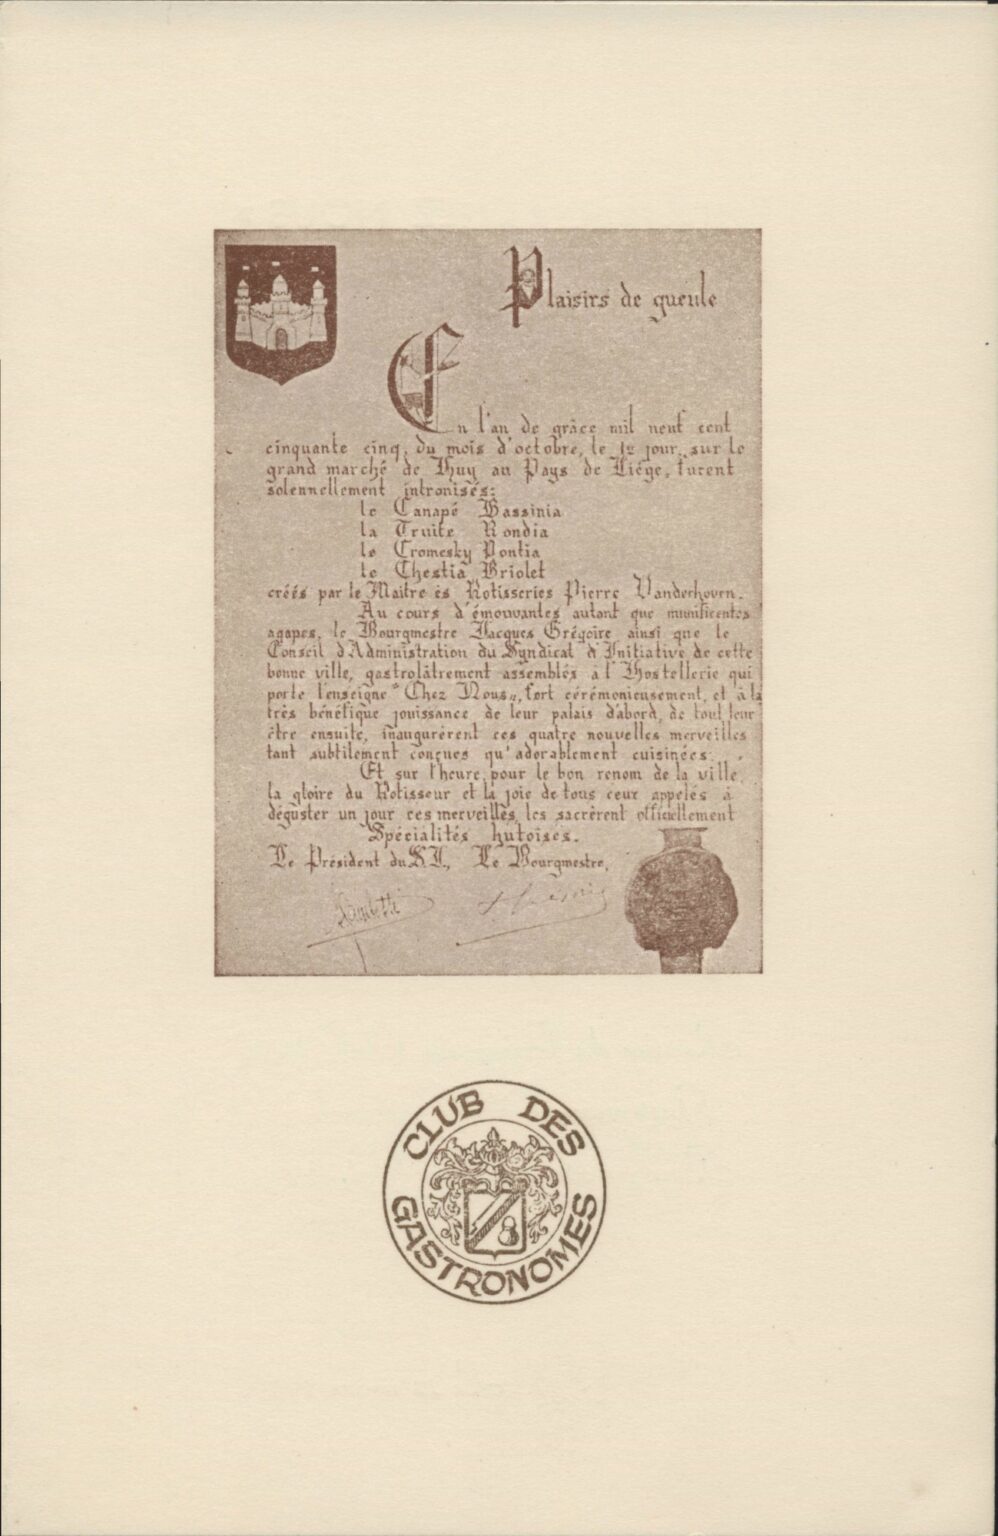 Plaisirs de gueule
En l'an de grâce mil neuf cent
cinquante cinq, du mois d'octobre, le 12 jour, sur le
grand marché de Huy au Pays de Liége, furent
solennellement intronisés:
le Canapé Bassinia
la Truite Rondia
le Cromesky Pontia
le Chestia Briolet
créés par le Maitre ès Rotisseries Pierre Vanderhoven.
Au cours d'émouvantes autant que munificentes
agapes, le Bourgmestre Jacques Grégoire ainsi que le
Conseil d'Administration du Syndicat d'Initiative de cette
bonne ville, gastrolâtrement assemblés à l'Hostellerie qui
porte l'enseigne "Chez Nous", fort cérémonieusement, et à la
très bénéfique jouissance de leur palais d'abord, de tout leur
être ensuite, inaugurèrent ces quatre nouvelles merveilles
tant subtilement conçues qu'adorablement cuisinées.
Et sur l'heure, pour le bon renom de la ville,
la gloire du Rotisseur et la joie de tous ceux appelés à
déguster un jour ces merveilles, les sacrèrent officiellement
Spécialités hutoises.
Le Président du S.I., Le Bourgmestre,
CLUB DES
GASTRONOMES